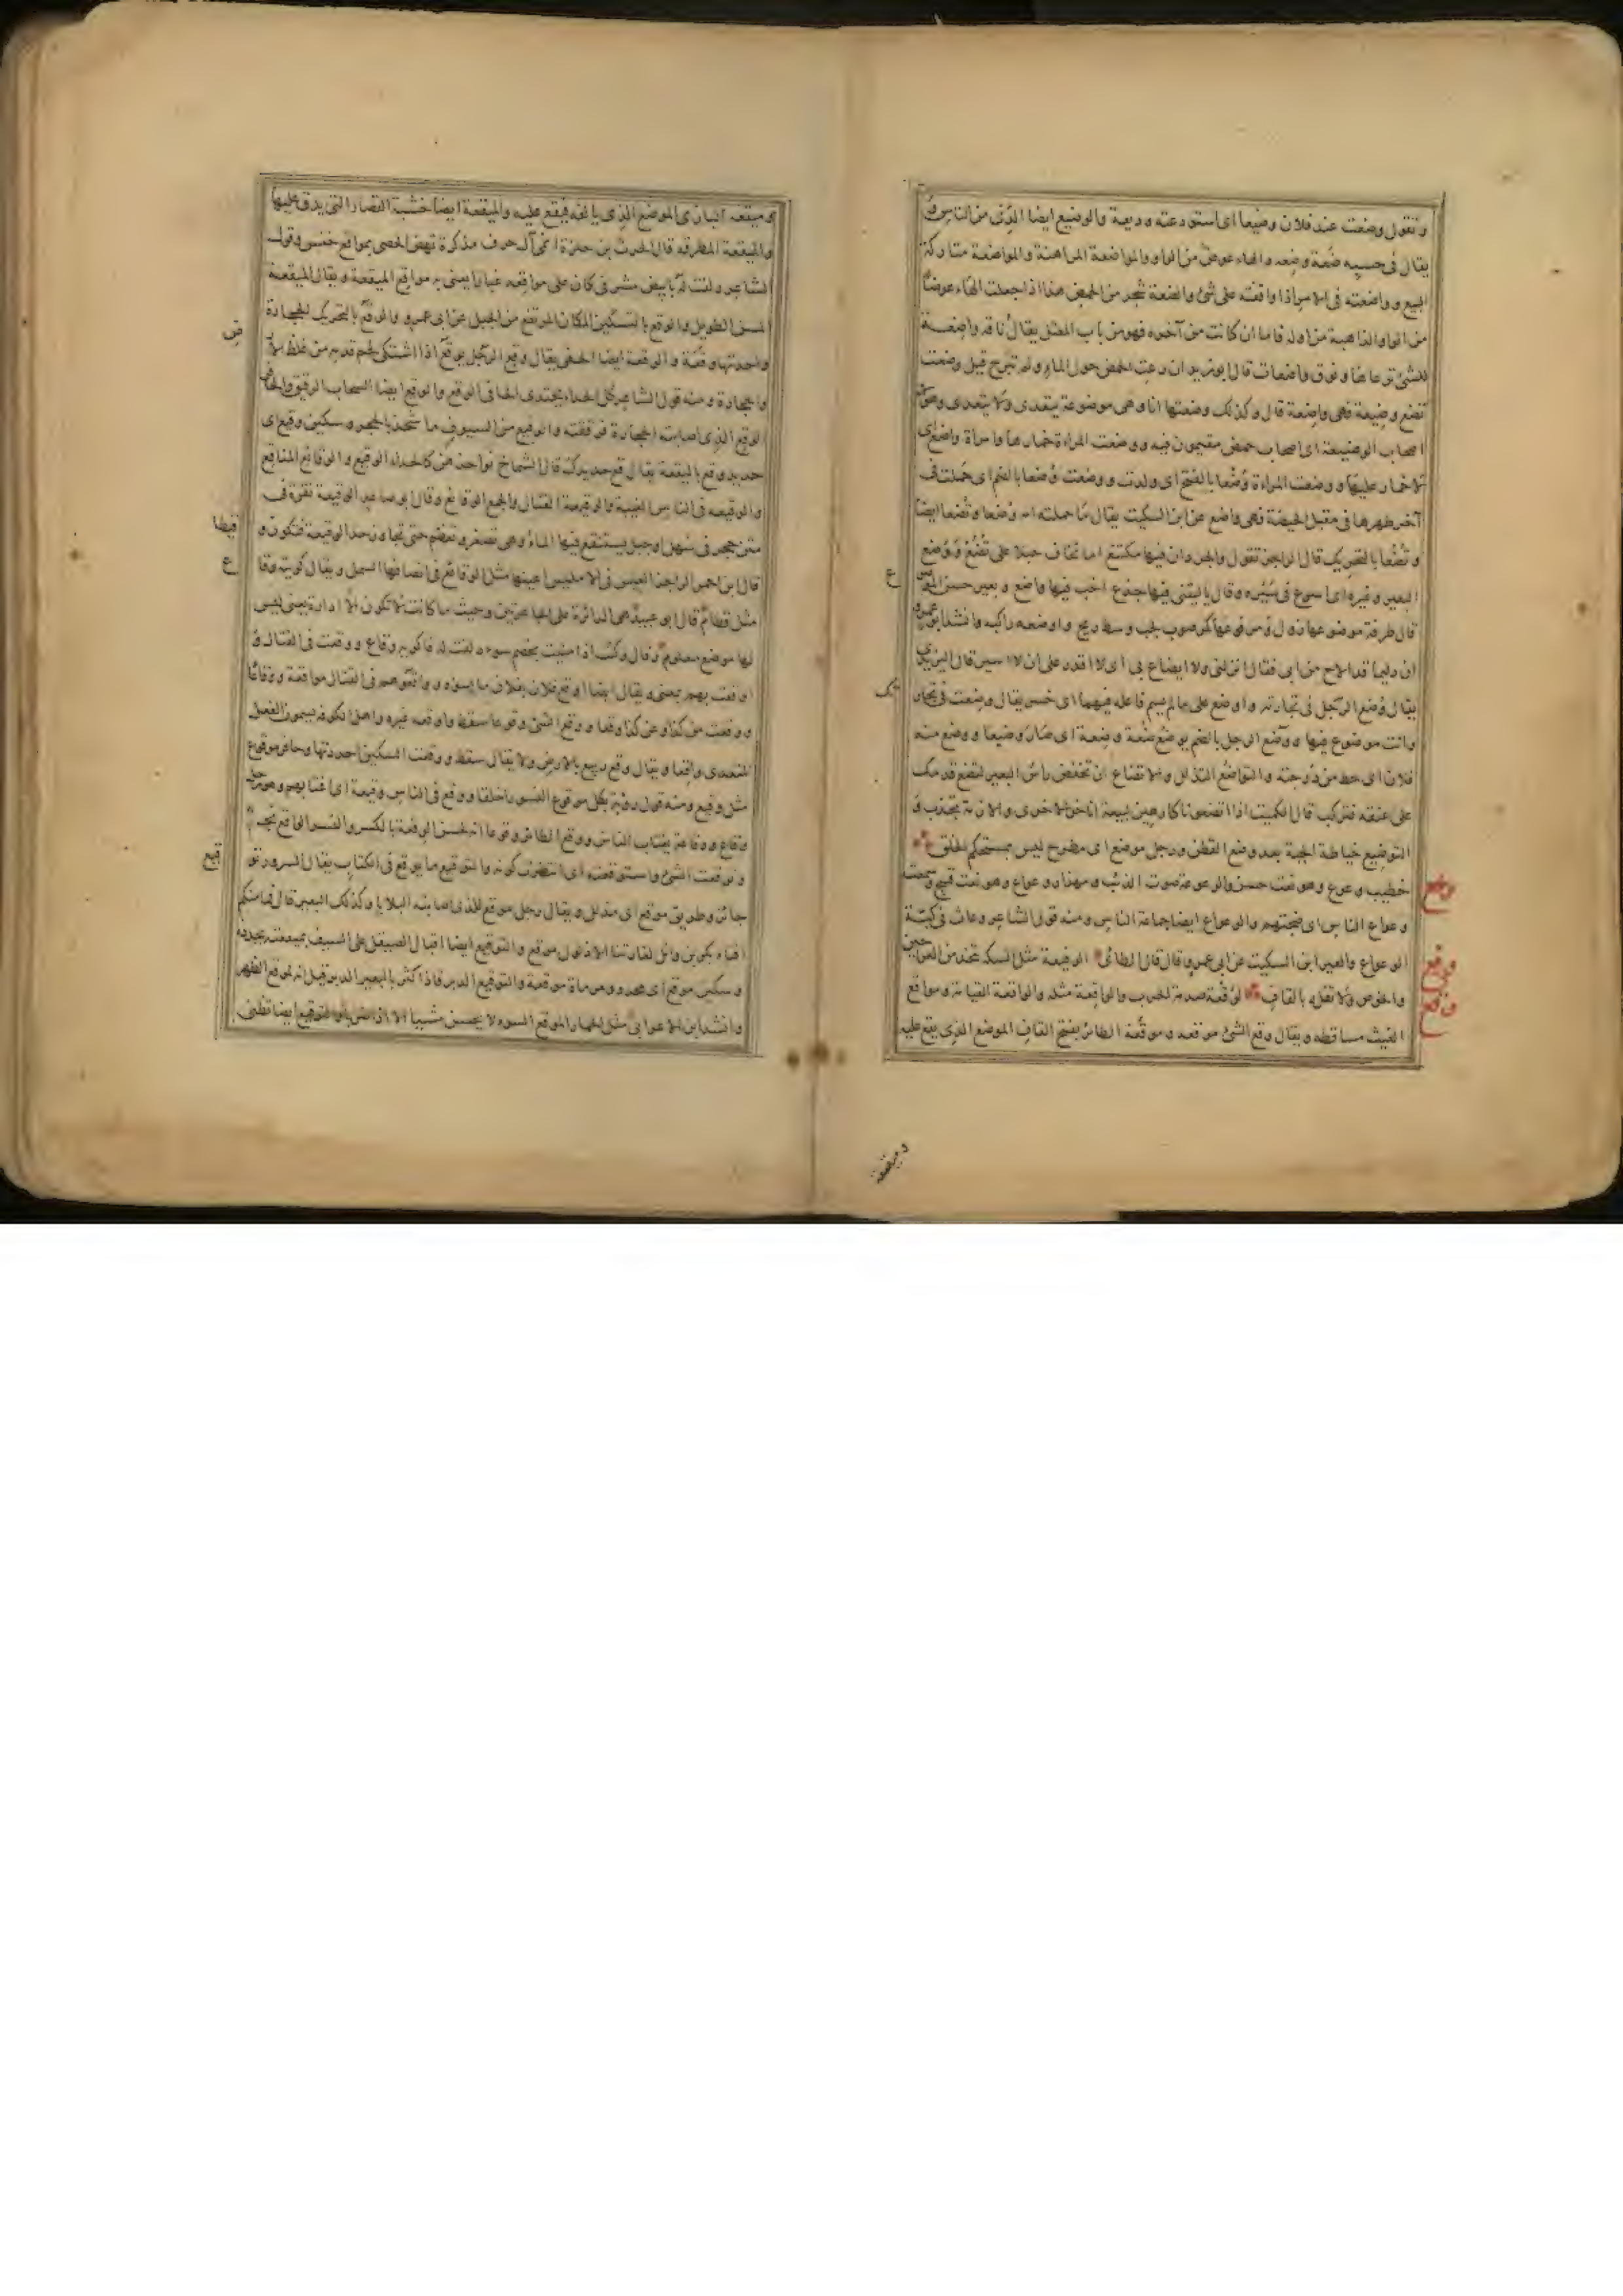 وتقول وضعت عند فلان وضيعا اى استودعته وديعة والوضيع ايضا الدنى من الناس و
يقال فى حسبه ضعة وضعه والهاء عوض من الواو والمواضعة المراهنة والمواضعة متاركة
البيع وواضعته فى الامر اذا وافقته على شئ والضعة شجر من الحمض هذا اذا جعلت الهاء عوضا
من الواو الذاهبة من اوله فاما ان كانت من آخره فهو من باب المعتل يقال ناقة واضعة
ونوق واضعات قال ابو زيد ان رعت الحمض حول الماء ولم تبرح قيل وضعت
تضع وضيعة فهى واضعة قال وكذلك وضعتها انا وهى موضوعة يتعدى ولا يتعدى
اصحاب الوضيعة اى اصحاب حمض مقيمون فيه ووضعت المراءة خمارها وامراة واضع اى
لا خمار عليها ووضعت المراءة وضعا بالفتح اى ولدت ووضعت وضعا بالضم اى حملت فى
آخر طهرها فى مقبل الحيضة فهى واضع عن ابن السكيت يقال ما حملته امه وضعا وتضعا ايضا
وتضعا بالتحريك قال الراجز تقول والجردان فيها مكتنع اما تخاف حبلا على تضع ووضع
البعير وغيره اى اسرع فى سيره وقال يا ليتنى فيها جذع اخب فيها واضع وبعير حسن الموضوع
قال طرفة موضوعها زول ومرفوعها كمر صوب لجب وسط ريح واوضعه راكبه وانشد ابو عمرو
ان دليما قد الاح من ابى فقال انزلنى ولا ايضاع بى اى لا اقدر على ان لا اسير قال اليزيدى
يقال وضع الرجل فى تجارته واوضع على ما لم يسم فاعله فيهما اى خسر يقال وضعت فى تجارتك
وانت موضوع فيها ووضع الرجل بالضم يوضع ضعة وضعة اى صار وضيعا ووضع منه
فلان اى حط من درجته والتواضع التذلل والاتضاع ان تخفض راس البعير لتضع قدمك
على عنقه فتركب قال الكميت اذا اتضعونا كارهين لبيعة اناخوا لاخرى والازمة تجذب و
التوضيع خياطة الجبة بعد وضع القطن ورجل موضع اى مطرح ليس بمستحكم الخلق
وعع خطيب وعوع وهو نعت حسن والوعوعة صوت الذئب ومهذار وعواع وهو نعت قبيح وسمعت
وعواع الناس اى ضجتهم والوعواع ايضا جماعة الناس ومنه قول الشاعر وعاث فى كبة
وفع الوعواع والعير ابن السكيت عن ابى عمرو قال قال الطائى الوفيعة مثل السلة تتخذ من العراجين
وقع والخوص ولا تقله بالقاف الوقعة صدمة الحرب والواقعة مثله والواقعة القيامة ومواقع
الغيث مساقطه ويقال وقع الشئ موقعه وموقعة الطائر بفتح القاف الموضع الذى يقع عليه
وميقعة
وميقعة البازى الموضع الذى يالفه فيقع عليه والميقعة ايضا خشبة القصار التى يدق عليها
والميقعة المطرقة قال الحرث بن حلزة انمى الى حرف مذكرة تهص الحصى بمواقع خنس وقول
الشاعر دلفت له بابيض مشرفى كان على مواقعه غبارا يعنى به مواقع الميقعة ويقال الميقعة
المسن الطويل والوقع بالتسكين المكان المرتفع من الجبل عن ابى عمرو والوقع بالتحريك الحجارة
واحدتها وقعة والوقعة ايضا الحفى يقال وقع الرجل يوقع اذا اشتكى لحم قدمه من غلظ الارض
والحجارة ومنه قول الشاعر كل الحذاء يحتذى الحافى الوقع والوقع ايضا السحاب الرقيق والحافر
الوقع الذى اصابته الحجارة فوقعته والوقيع من السيوف ما شحذ بالحجر وسكين وقيع اى
حديد وقع بالميقعة يقال قع حديدك قال الشماخ نواجذهن كالحدا الوقيع والوقائع المناقع
والوقيعة فى الناس الغيبة والوقيعة القتال والجمع الوقائع وقال ابو صاعد الوقيعة نقرة فى
متن حجر فى سهل او جبل يستنقع فيها الماء وهى تصغر وتعظم حتى تجاوز حد الوقيعة فتكون وقيطا
قال ابن احمر الزاجر العيس فى الامليس اعينها مثل الوقائع فى انصافها السمل ويقال كويته وقاع
مثل قطام قال ابو عبيد هى الدائرة على الجاعرتين وحيث ما كانت لا تكون الا ادارة يعنى ليس
لها موضع معلوم وقال وكنت اذا منيت بخصم سوء دلفت له فاكويه وقاع ووقعت فى القتال و
اوقعت بهم بمعنى ويقال ايضا اوقع فلان بفلان ما يسوءه وواقعوهم فى القتال مواقعة ووقاعا
ووقعت من كذا وعن كذا وقعا ووقع الشئ وقوعا سقط واوقعه غيره واهل الكوفة يسمون الفعل
المتعدى واقعا ويقال وقع ربيع بالارض ولا يقال سقط ووقعت السكين احددتها وحافر موقوع
مثل وقيع ومنه قول رؤبة بكل موقوع النسور اخلقا ووقع فى الناس وقيعة اى اغتابهم وهو رجل
وقاع ووقاعة يغتاب الناس ووقع الطائر وقوعا انه لحسن الوقعة بالكسر والنسر الواقع نجم
وتوقعت الشئ واستوقعته اى انتظرت كونه والتوقيع ما يوقع فى الكتاب يقال السرور توقيع
جائز وطريق موقع اى مذلل ويقال رجل موقع للذى اصابته البلايا وكذلك البعير قال فما منكم
افناء بكر بن وائل لغارتنا الا ذلول موقع والتوقيع ايضا اقبال الصيقل على السيف بميقعته يحدده
وسكين موقع اى محدد ومرماة موقعة والتوقيع الدبر فاذا كثر بالبعير الدبر قيل انه لموقع الظهر
وانشد ابن الاعرابى مثل الحمار الموقع السوء لا يحسن مشيا الا اذا ضربا والتوقيع ايضا تظنى